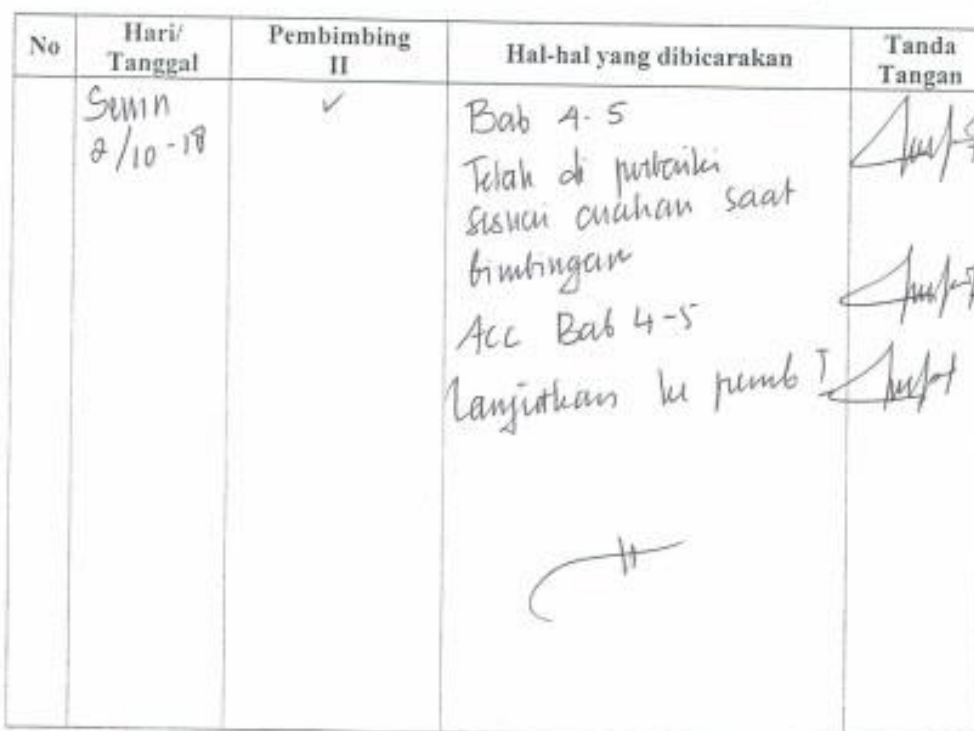 No
Hari/
Tanggal
Pembimbing
II
Hal-hal yang dibicarakan
Tanda
Tangan
Senin
2/10-18
✓
Bab 4-5
Telah di perbaiki
sesuai arahan saat
bimbingan
Acc Bab 4-5
Lanjutkan ke pemb I